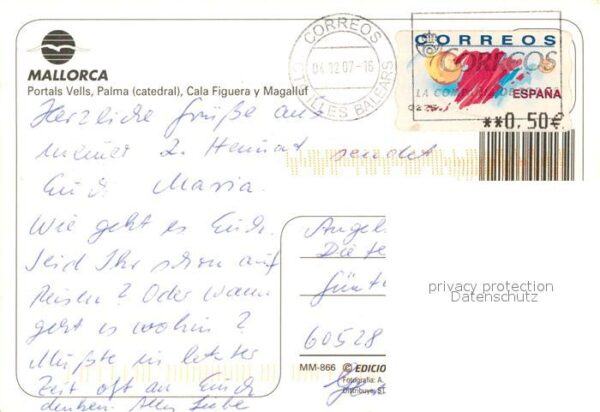 MALLORCA
Portals Vells, Palma (catedral), Cala Figuera y Magalluf
CORREOS
04.12.07-16
ILLES BALEARS
CORREOS
CORREOS
ESPAÑA
**0.50€
Herzliche Grüße aus
meiner 2. Heimat sendet
Euch Maria.
Wie geht es Euch.
Seid Ihr schon auf
Reisen? Oder wann
geht es wohin?
Mußte in letzter
Zeit oft an Euch
denken. Alles Liebe
Angel
Die
Günt
60528
privacy protection
Datenschutz
MM-866 © EDICIO
Fotografía: A.
Distribuye: S.